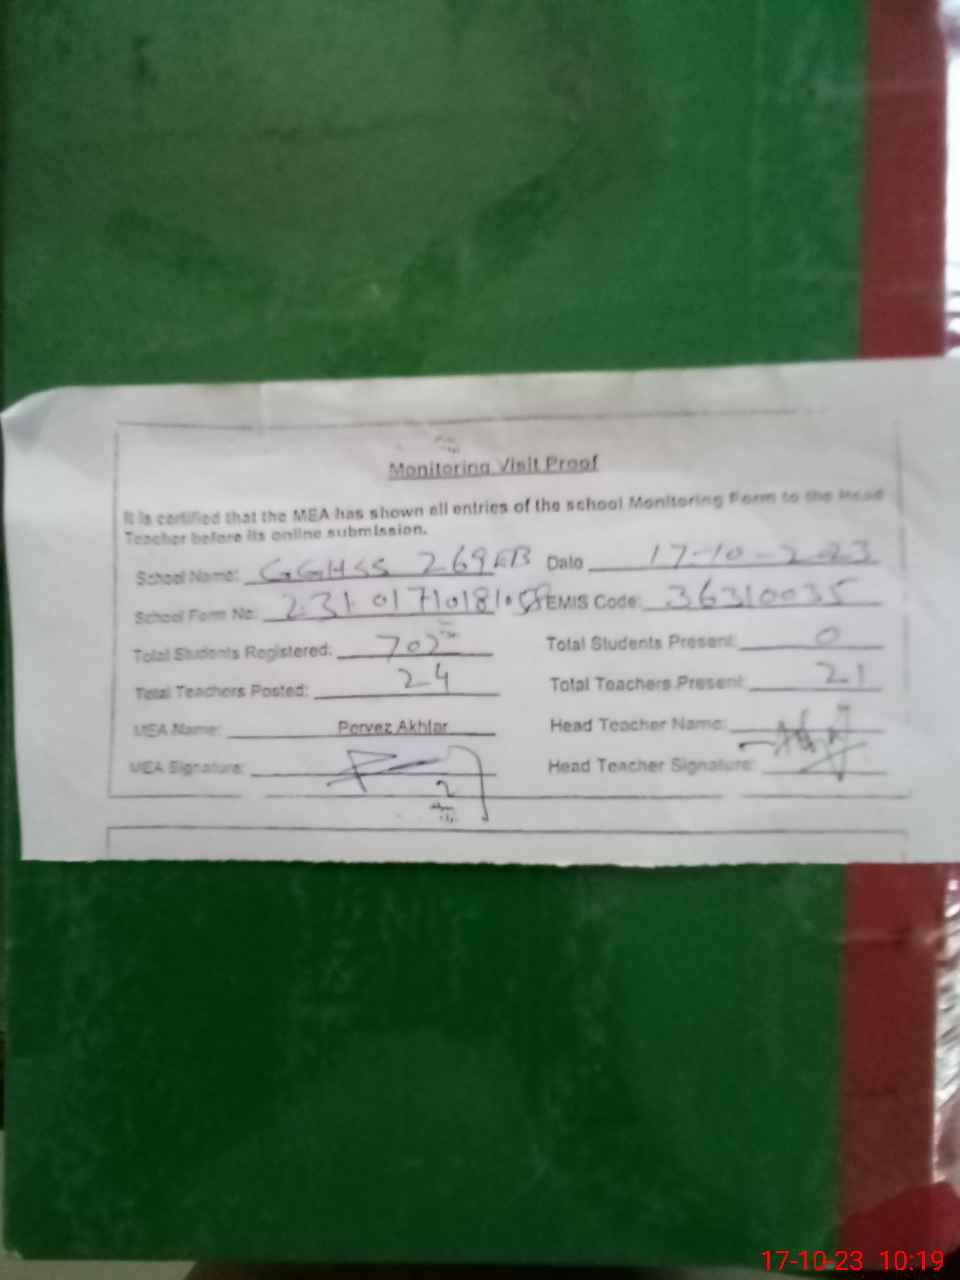 Monitoring Visit Proof
It is certified that the MEA has shown all entries of the school Monitoring Form to the Head
Teacher before its online submission.
School Name: GGHSS 269 EB Date 17-10-2023
School Form No: EMIS Code: 36310035
Total Students Registered: 702 Total Students Present: 0
Total Teachers Posted: 24 Total Teachers Present: 21
MEA Name: Pervez Akhtar Head Teacher Name:
MEA Signature: Head Teacher Signature:
17-10-23 10:19